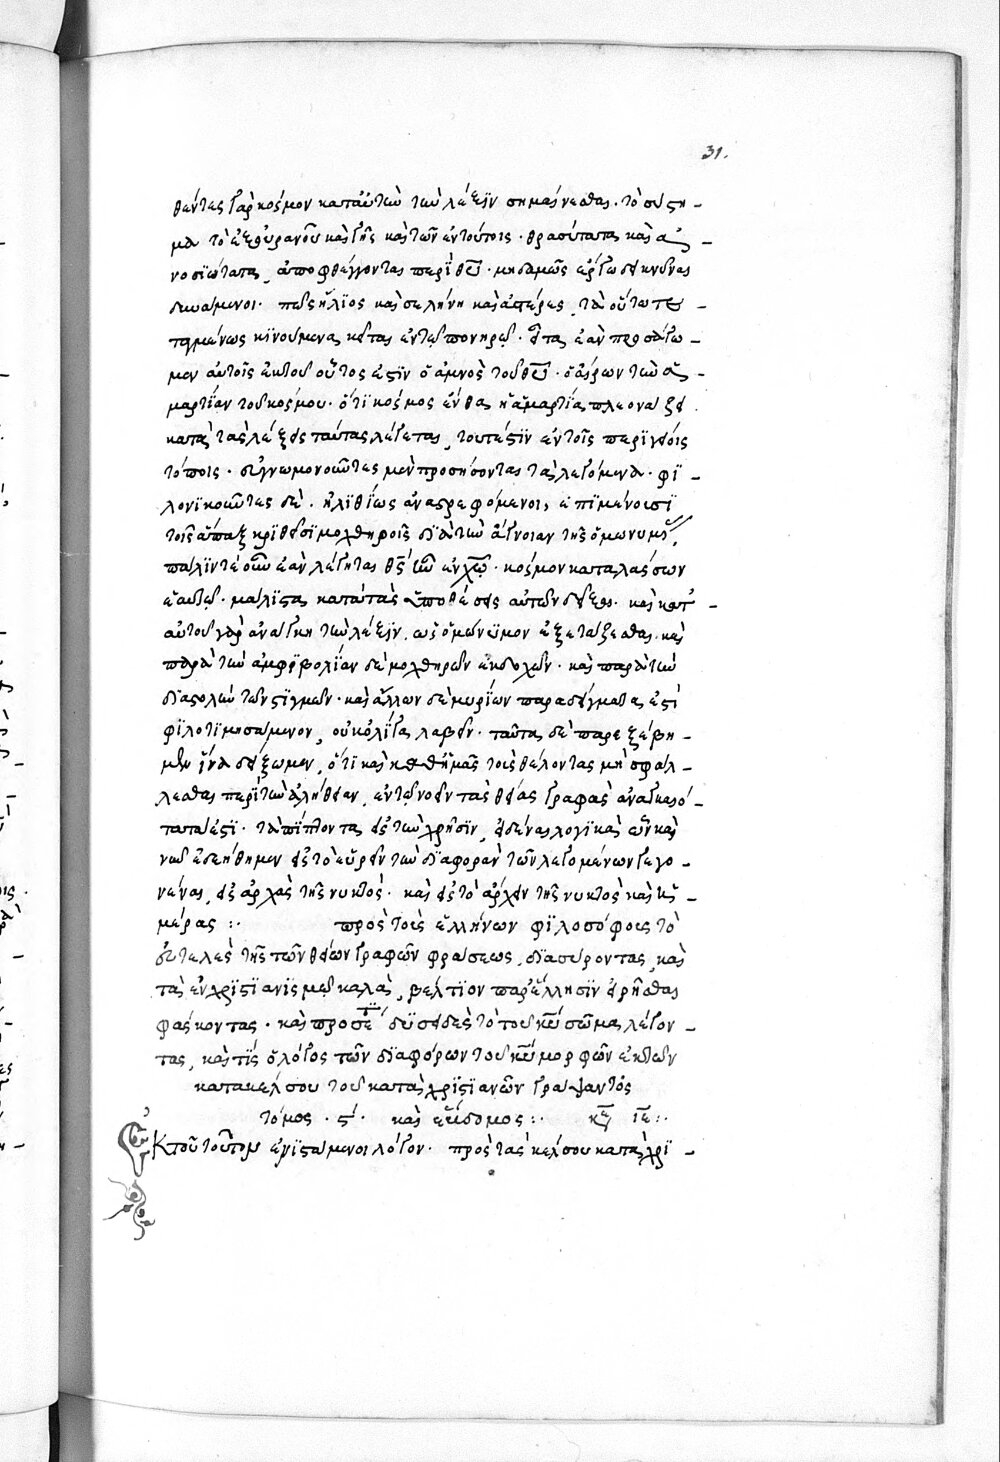 31.
θέντες γὰρ κόσμον κατ' αὐτὴν τὴν λέξϊν σημαίνεσθαι. τὸ σύστη-
μα τὸ ἐξ οὐρανοῦ καὶ γῆς καὶ τῶν ἐντούτοις. θρασύτατα καὶ ἀ-
νοσϊώτατα, ἀποφθέγγονται περὶ θεοῦ. μηδαμῶς ἔργω δεικνύναι
δυνάμενοι. πῶς ἥλϊος καὶ σελήνη καὶ ἀστέρες, τὰ οὕτω τε-
ταγμένως κϊνούμενα, κεῖται ἐντῶ πονηρῶ. εἶτα ἐὰν προσάγω-
μεν αὐτοῖς ἐκτοῦ οὗτος ἐστϊν ὁ ἀμνὸς τοῦ θεοῦ. ὁ αἴρων τὴν ἁ-
μαρτΐαν τοῦ κόσμου. ὅτϊ κόσμος ἔνθα ἡ ἁμαρτΐα πλεονάζει.
κατὰ τὰς λέξεις ταύτας λέγεται, τουτέστϊν ἐντοῖς περϊγείοις
τόποις. εὐγνωμονοῦντες μὲν προσήσονται τὰ λεγόμενα. φϊ-
λονϊκοῦντες δὲ. ἠλϊθΐως ἀναστρεφόμενοι, ἐπϊμένουσϊ
τοῖς ἅπαξ κρϊθεῖσϊ μοχθηροῖς δϊὰ τὴν ἄγνοιαν τῆς ὁμωνυμίας.
πάλϊν τε οὖν ἐὰν λέγηται θεὸς ἦν ἐν χριστῶ. κόσμον καταλάσσων
ἑαυτῶ. μάλϊστα κατὰ τὰς ὑποθέσεις αὐτῶν δείξει. καὶ κατ'
αὐτοὺς γὰρ ἀνάγκη τὴν λέξϊν, ὡς ὁμώνυμον ἐξετάζεσθαι. καὶ
παρὰ τὴν ἀμφϊβολΐαν δὲ μοχθηρῶν ἐκδοχῶν. καὶ παρὰ τὴν
δϊαστολὴν τῶν στϊγμῶν. καὶ ἄλλων δὲ μυρΐων παραδείγματα, ἐστϊ
φϊλοτϊμησάμενον, οὐκ ὀλΐγα λαβεῖν. ταῦτα δὲ παρεξέβη-
μεν ἵνα δείξωμεν, ὅτϊ καὶ καθ' ἡμᾶς τοὺς θέλοντας μὴ σφάλ-
λεσθαι περὶ τὴν ἀλήθειαν, ἐντῶ νοεῖν τὰς θείας γραφὰς ἀναγκαιό-
τατα ἐστϊ. τὰ πΐπτοντα εἰς τὴν χρῆσϊν, εἰδέναι λογϊκὰ. ὧν καὶ
νῦν ἐδεήθημεν εἰς τὸ εὑρεῖν τὴν δϊαφορὰν τῶν λεγομένων γεγο-
νέναι, εἰς ἀρχὰς τῆς νυκτὸς. καὶ εἰς τὸ ἄρχειν τῆς νυκτὸς καὶ ἡ-
μέρας :. πρὸς τοὺς ἑλλήνων φϊλοσόφους τὸ
εὐτελὲς τῆς τῶν θείων γραφῶν φράσεως, δϊασύροντας, καὶ
τὰ ἐν χρϊστϊανϊσμῶ καλὰ, βέλτϊον παρ' ἕλλησϊν εἰρῆσθαι
φάσκοντας. καὶ προσέτϊ δυσειδὲς τὸ τοῦ κυρίου σῶμα λέγον-
τας, καὶ τΐς ὁ λόγος τῶν δϊαφόρων τοῦ λόγου μορφῶν ἐκτῶν
κατὰ κέλσου τοῦ κατὰ χρϊστϊανῶν γράψαντος
τόμος . ϛ΄. καὶ ἕβδομος :. κε ιε :.
Ἕκτον τοῦτον ἐνϊστάμενοι λόγον. πρὸς τὰς κέλσου κατὰ χρϊ-